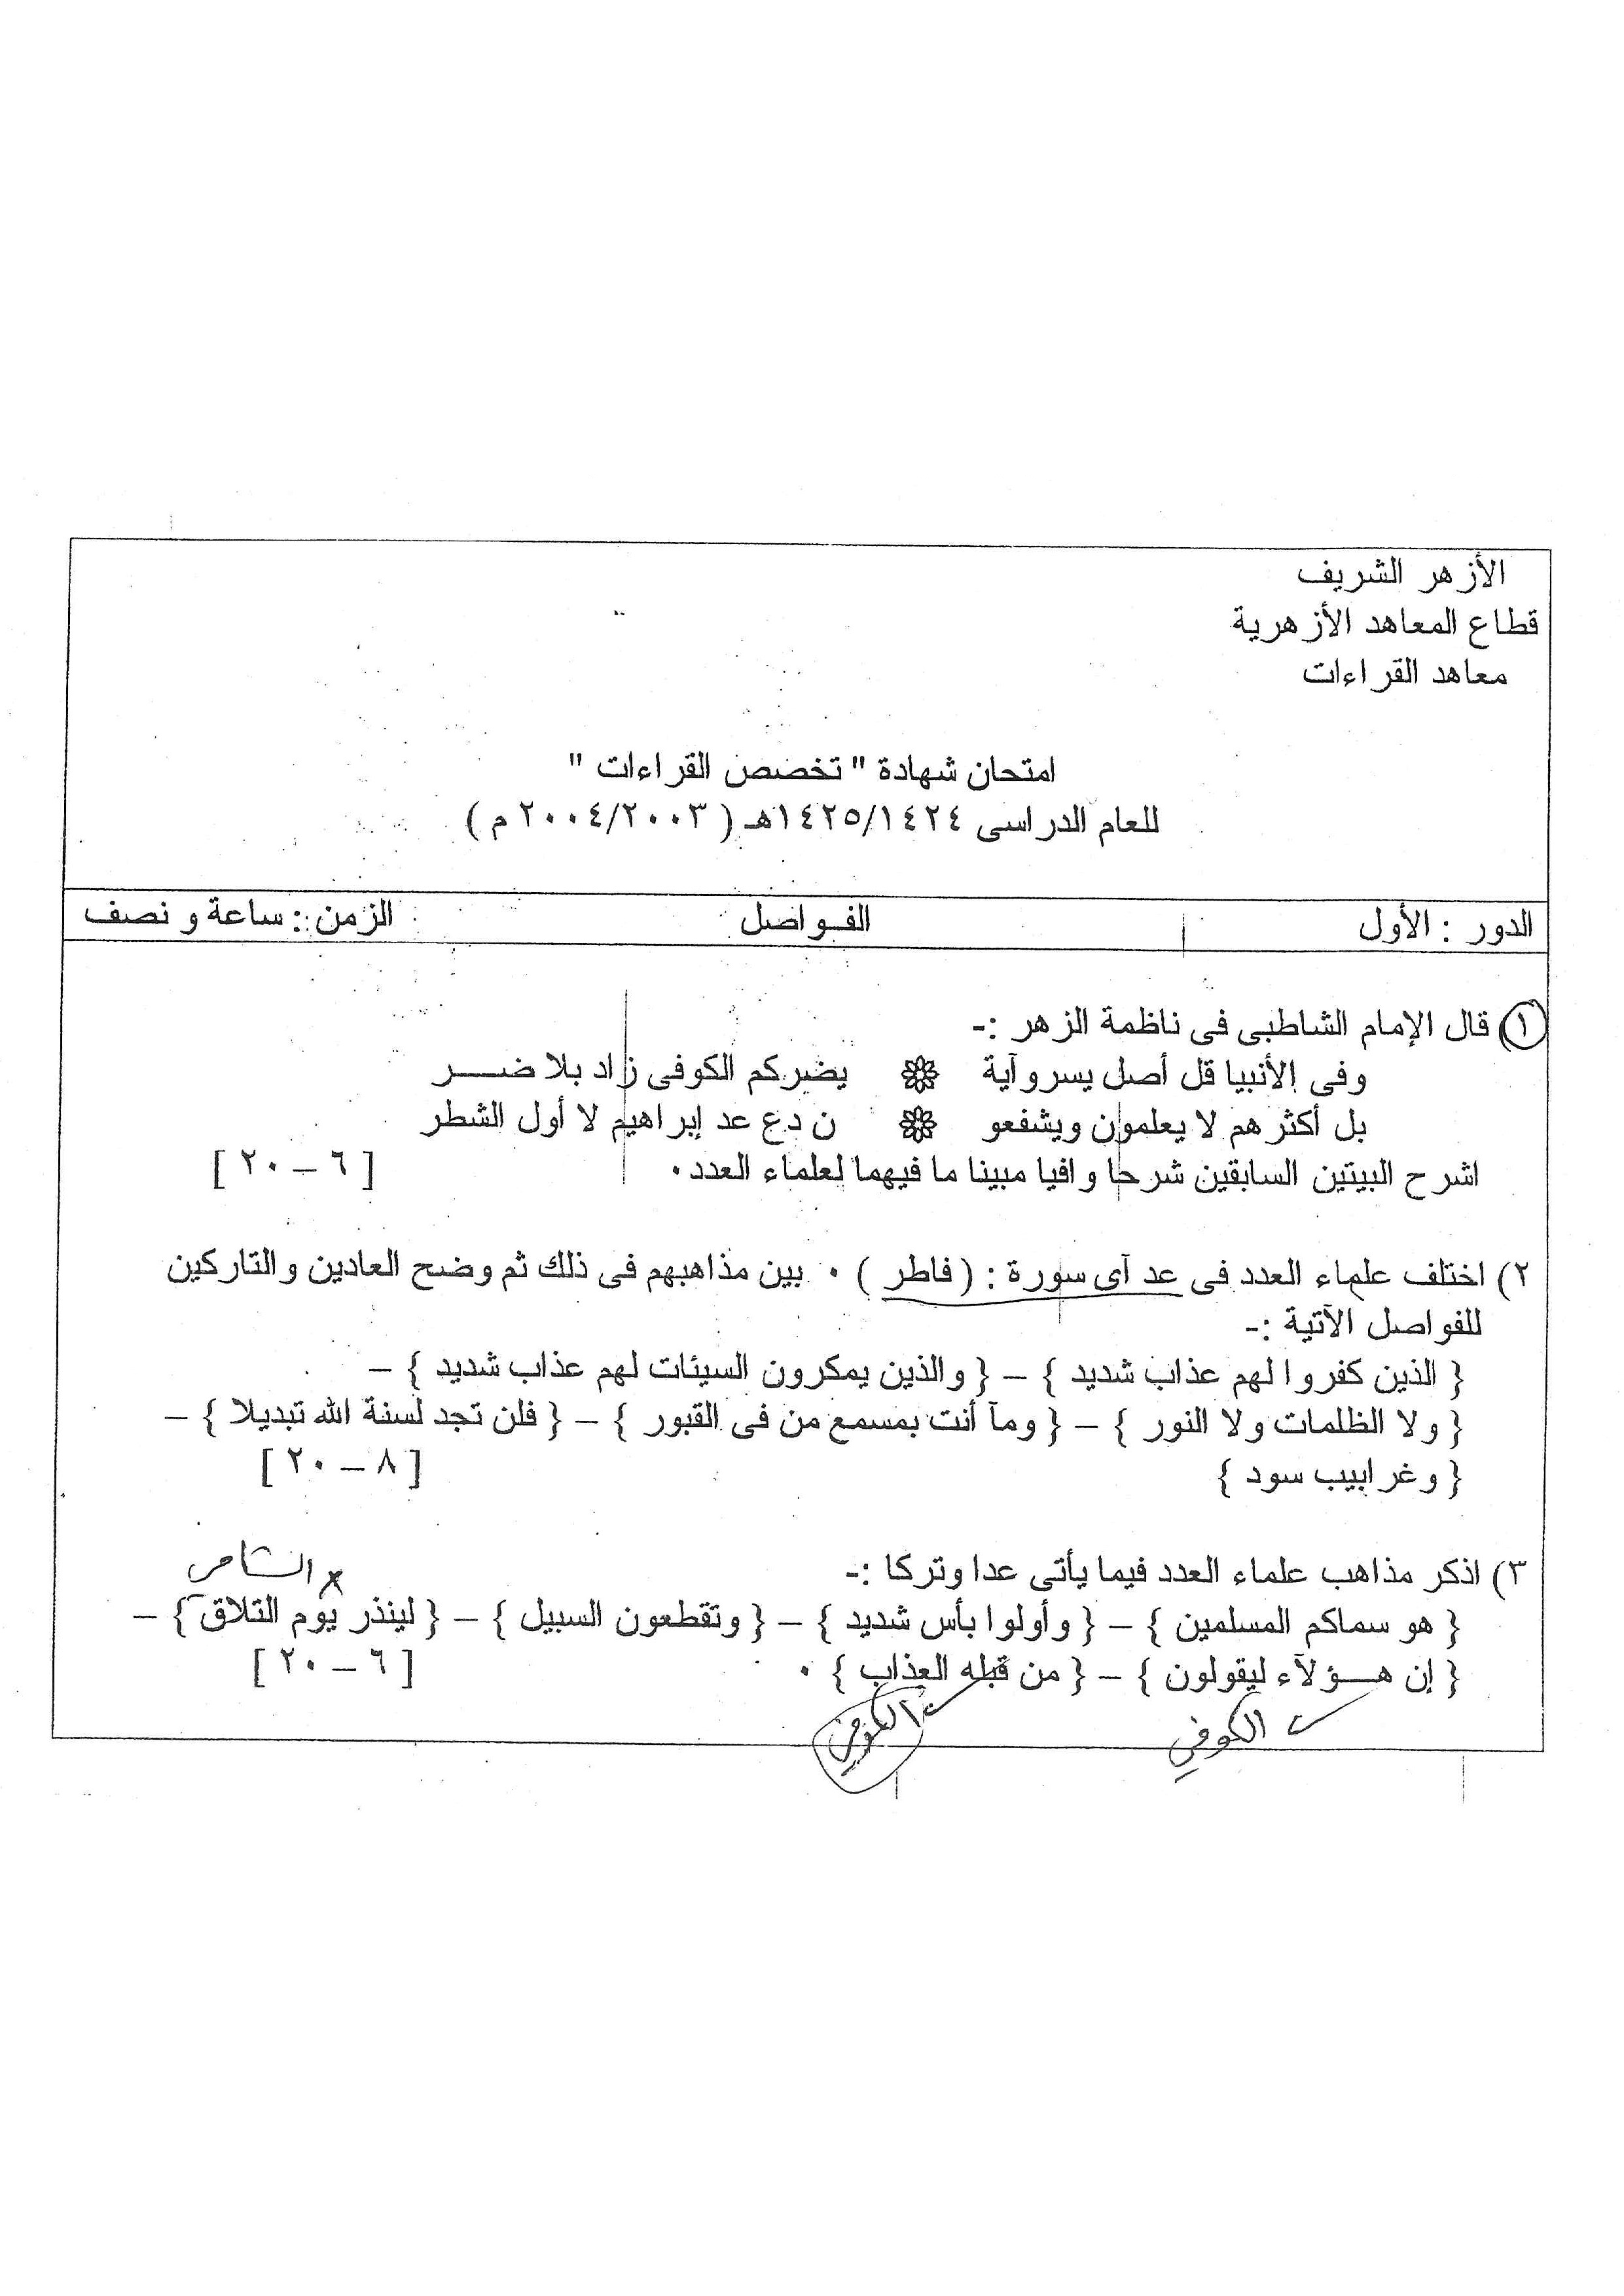 الأزهر الشريف
قطاع المعاهد الأزهرية
معاهد القراءات
امتحان شهادة " تخصص القراءات "
للعام الدراسى ١٤٢٥/١٤٢٤هـ ( ٢٠٠٤/٢٠٠٣ م )
الدور : الأول الفـواصل الزمن : ساعة و نصف
١) قال الإمام الشاطبى فى ناظمة الزهر :-
وفى الأنبيا قل أصل يسر وآية ❁ يضركم الكوفى زاد بلا ضـــر
بل أكثرهم لا يعلمون ويشفعو ❁ ن دع عد إبراهيم لا أول الشطر
اشرح البيتين السابقين شرحا وافيا مبينا ما فيهما لعلماء العدد ٠ [ ٦ – ٢٠ ]
٢) اختلف علماء العدد فى عد آى سورة : ( فاطر ) ٠ بين مذاهبهم فى ذلك ثم وضح العادين والتاركين
للفواصل الآتية :-
{ الذين كفروا لهم عذاب شديد } – { والذين يمكرون السيئات لهم عذاب شديد } –
{ ولا الظلمات ولا النور } – { ومآ أنت بمسمع من فى القبور } – { فلن تجد لسنة الله تبديلا } –
{ وغرابيب سود } [ ٨ – ٢٠ ]
٣) اذكر مذاهب علماء العدد فيما يأتى عدا وتركا :-
x الشامى
{ هو سماكم المسلمين } – { وأولوا بأس شديد } – { وتقطعون السبيل } – { لينذر يوم التلاق } –
{ إن هــؤلآء ليقولون } – { من قبله العذاب } ٠ [ ٦ – ٢٠ ]
الكوفي الكوفي